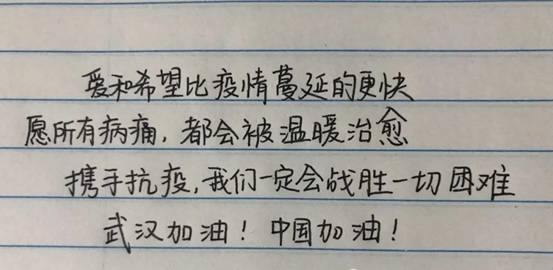 爱和希望比疫情蔓延的更快
愿所有病痛，都会被温暖治愈
携手抗疫，我们一定会战胜一切困难
武汉加油！中国加油！